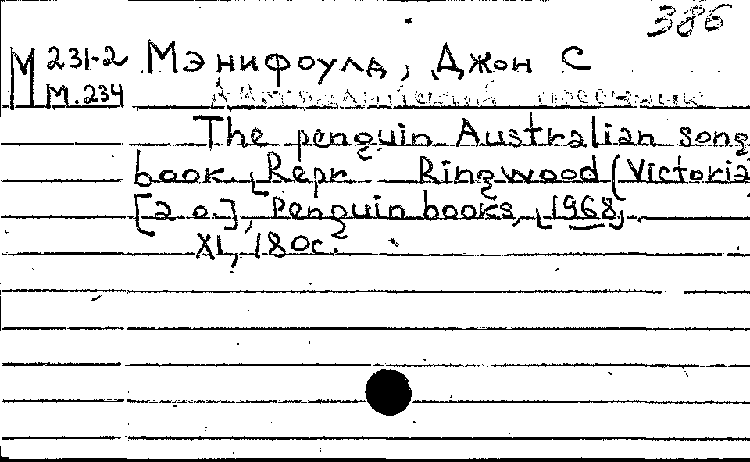 386
M 231-2 Мэнифоулд, Джон С
М.234 Австралийский песенник
The penguin Australian song
book. [Repr. Ringwood (Victoria
[a. o.], Penguin books, [1968].
XI, 180с.